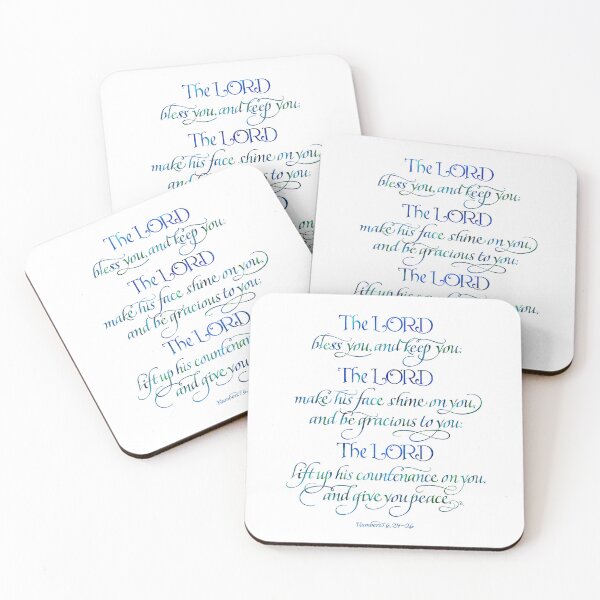 The LORD
bless you, and keep you:
The LORD
make his face shine on you,
and be gracious to you:
The LORD
bless you, and keep you:
The LORD
make his face shine on you,
and be gracious to you:
The LORD
lift up his countenance on you,
The LORD
bless you, and keep you:
The LORD
make his face shine on you,
and be gracious to you:
The LORD
lift up his countenance
and give you
Numbers 6
The LORD
bless you, and keep you:
The LORD
make his face shine on you,
and be gracious to you:
The LORD
lift up his countenance on you,
and give you peace.
Numbers 6.24-26